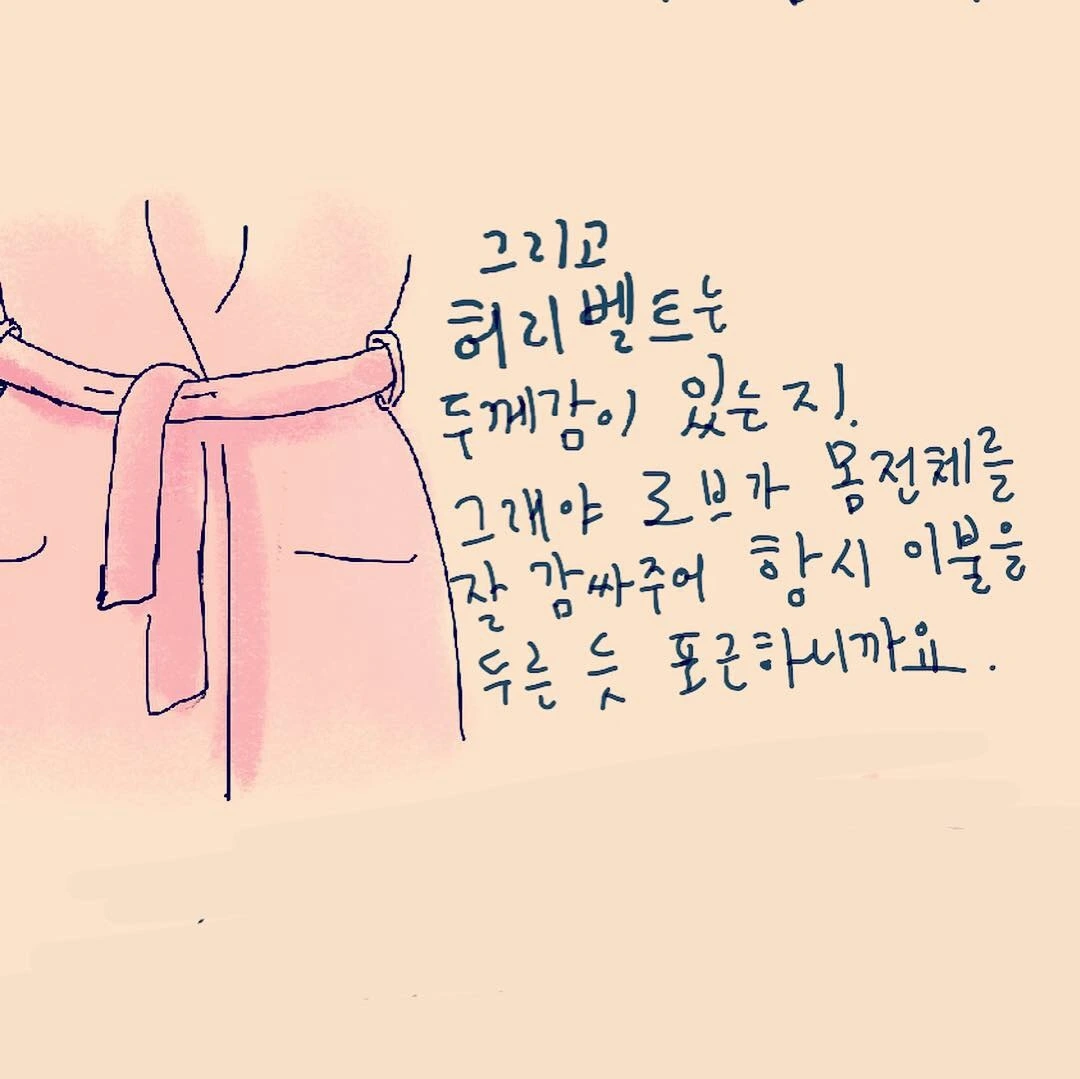 그리고
허리벨트는
두께감이 있는지.
그래야 로브가 몸전체를
잘 감싸주어 항시 이불을
두른 듯 포근하니까요.